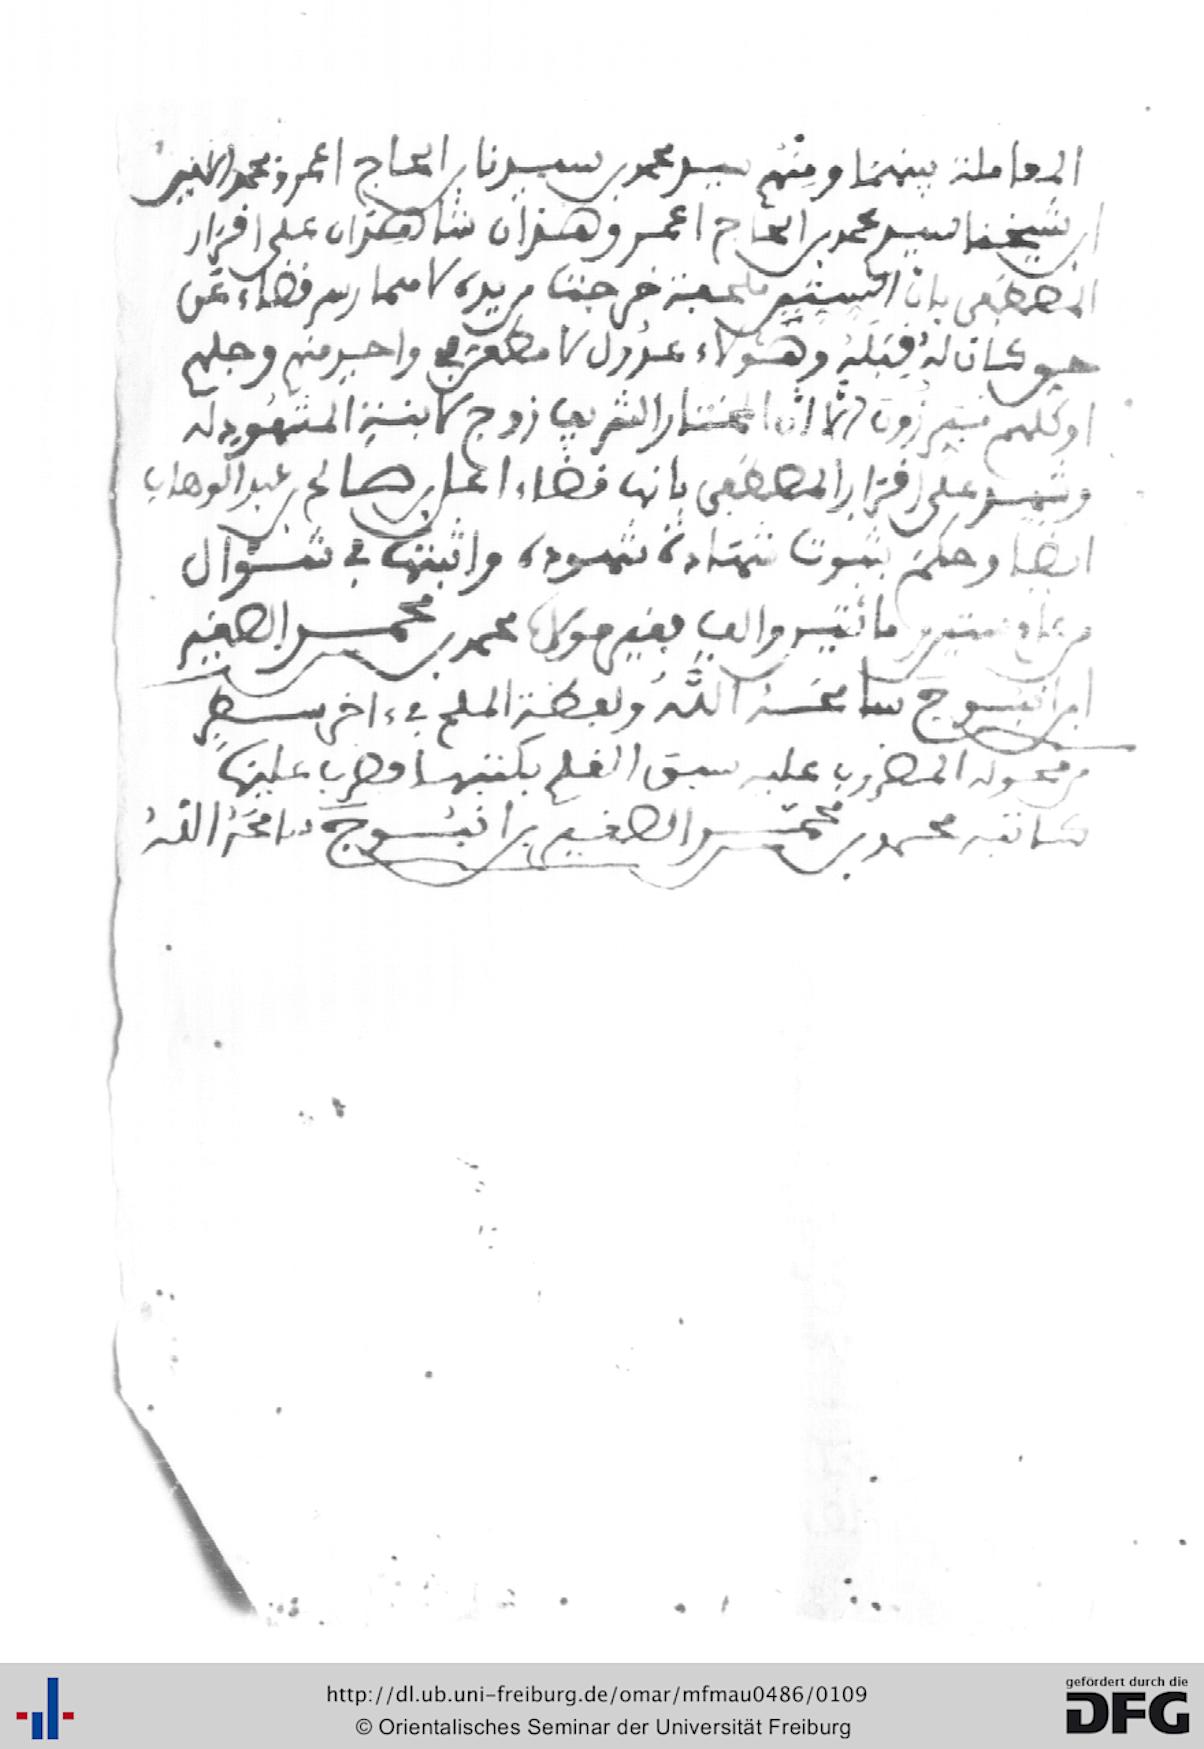 المعاملة بينهما ومنهم سيد محمد بن سيدنا بن الحاج اعمر ومحمد الاغير
ابن شيخنا سيد محمد بن الحاج اعمر وهذان شاهدان على اقرار
المصطفى بان خرجت من يده لا مماراس قضاء عن
حق كان له قبله وهؤلاء عدول لا مطعن في واحد منهم وجلهم
او كلهم مبرزون ان المختار الشريف زوج لابنة المشهود له
وشهد على اقرار المصطفى بانها قضاء اعل بن صالح بن عبد الوهاب
ايضا وحكمت بثبوت شهادة شهوده واثبتها في شوال
من عام ومائتين والف فقير مولاه محمد بن محمد الصغير
ابن انبوج سامحه الله ولفظة الملح في ءاخر سطر
من محوله المضروب عليه سبق القلم بكتبها وضرب عليها
كاتبه محمد بن محمد الصغير بن انبوج سامحه الله
http://dl.ub.uni-freiburg.de/omar/mfmau0486/0109
© Orientalisches Seminar der Universität Freiburg
gefördert durch die
DFG